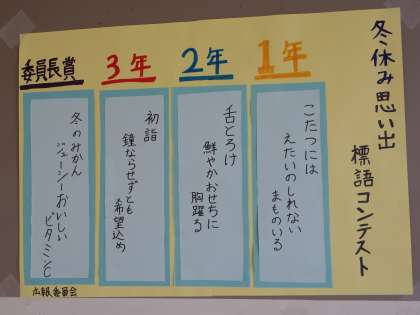 冬休み思い出
標語コンテスト
1年
こたつには
えたいのしれない
まものいる
2年
舌とろけ
鮮やかおせちに
胸躍る
3年
初詣
鐘ならせずとも
希望込め
委員長賞
冬のみかん
ジューシーおいしい
ビタミンC
広報委員会